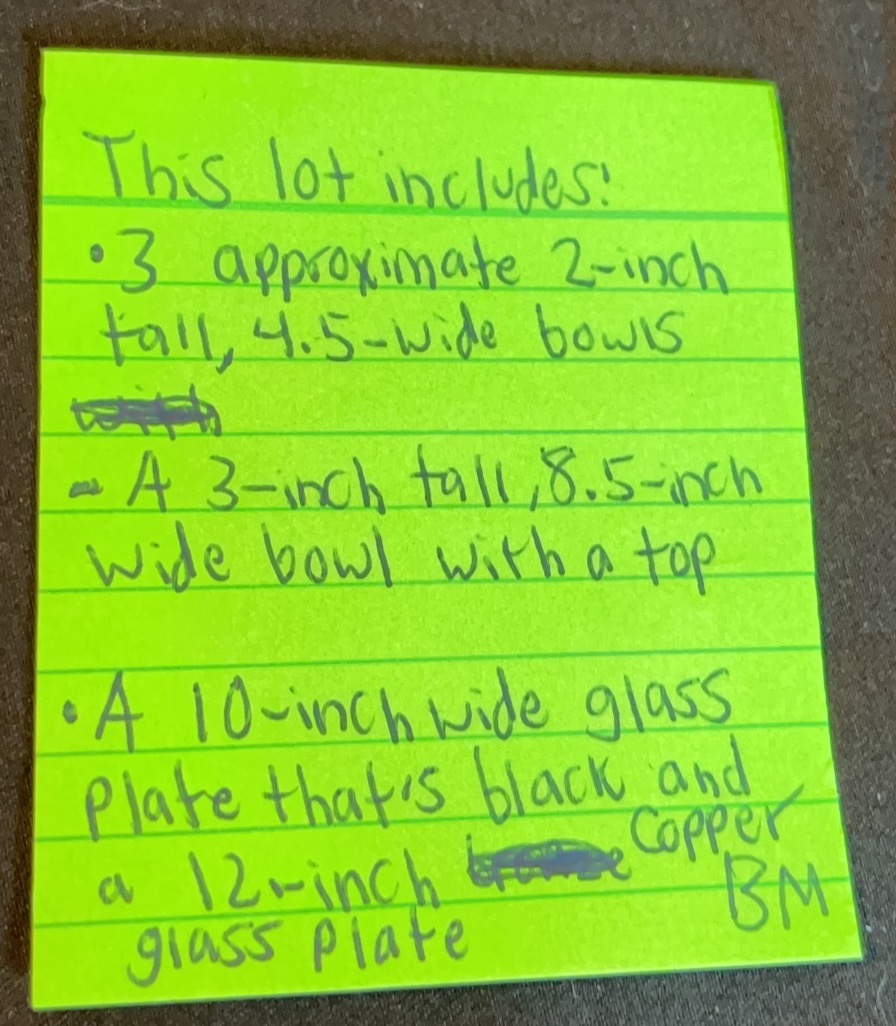 This lot includes:
• 3 approximate 2-inch
tall, 4.5-wide bowls
- A 3-inch tall, 8.5-inch
wide bowl with a top
• A 10-inch wide glass
plate that's black and
a 12-inch copper
glass plate
BM